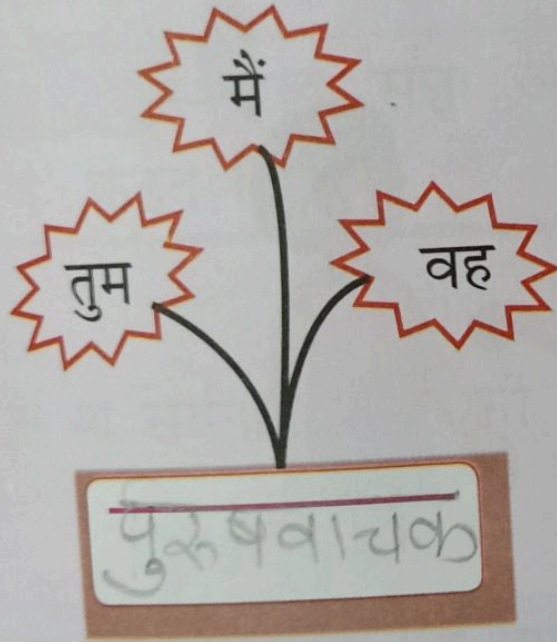 मैं
तुम
वह
पुरुषवाचक